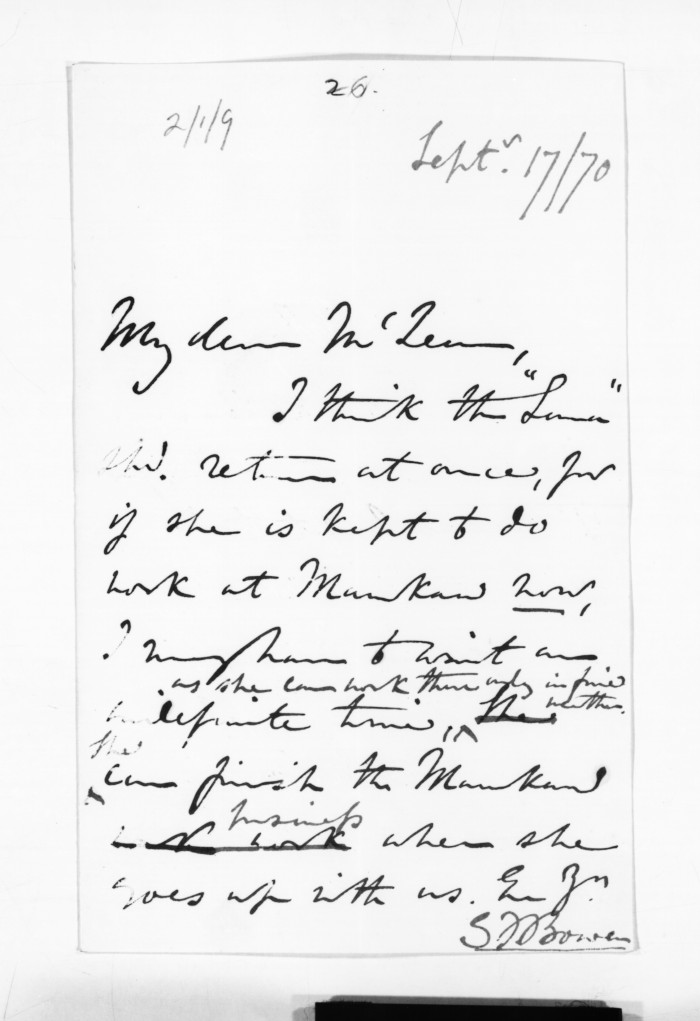 26.
2/1/9
Septr. 17/70
My dear McLean,
I think the "Luna"
shd. return at once, for
if she is kept to do
work at Manukau now,
I may have to wait an
as she can work there only in fine
weather.
indefinite time, She
She
can finish the Manukau
business
work when she
goes up with us.
G F Bowen